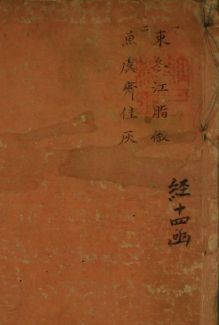 一
東冬江脂微
二
魚虞齊佳灰
經十四函